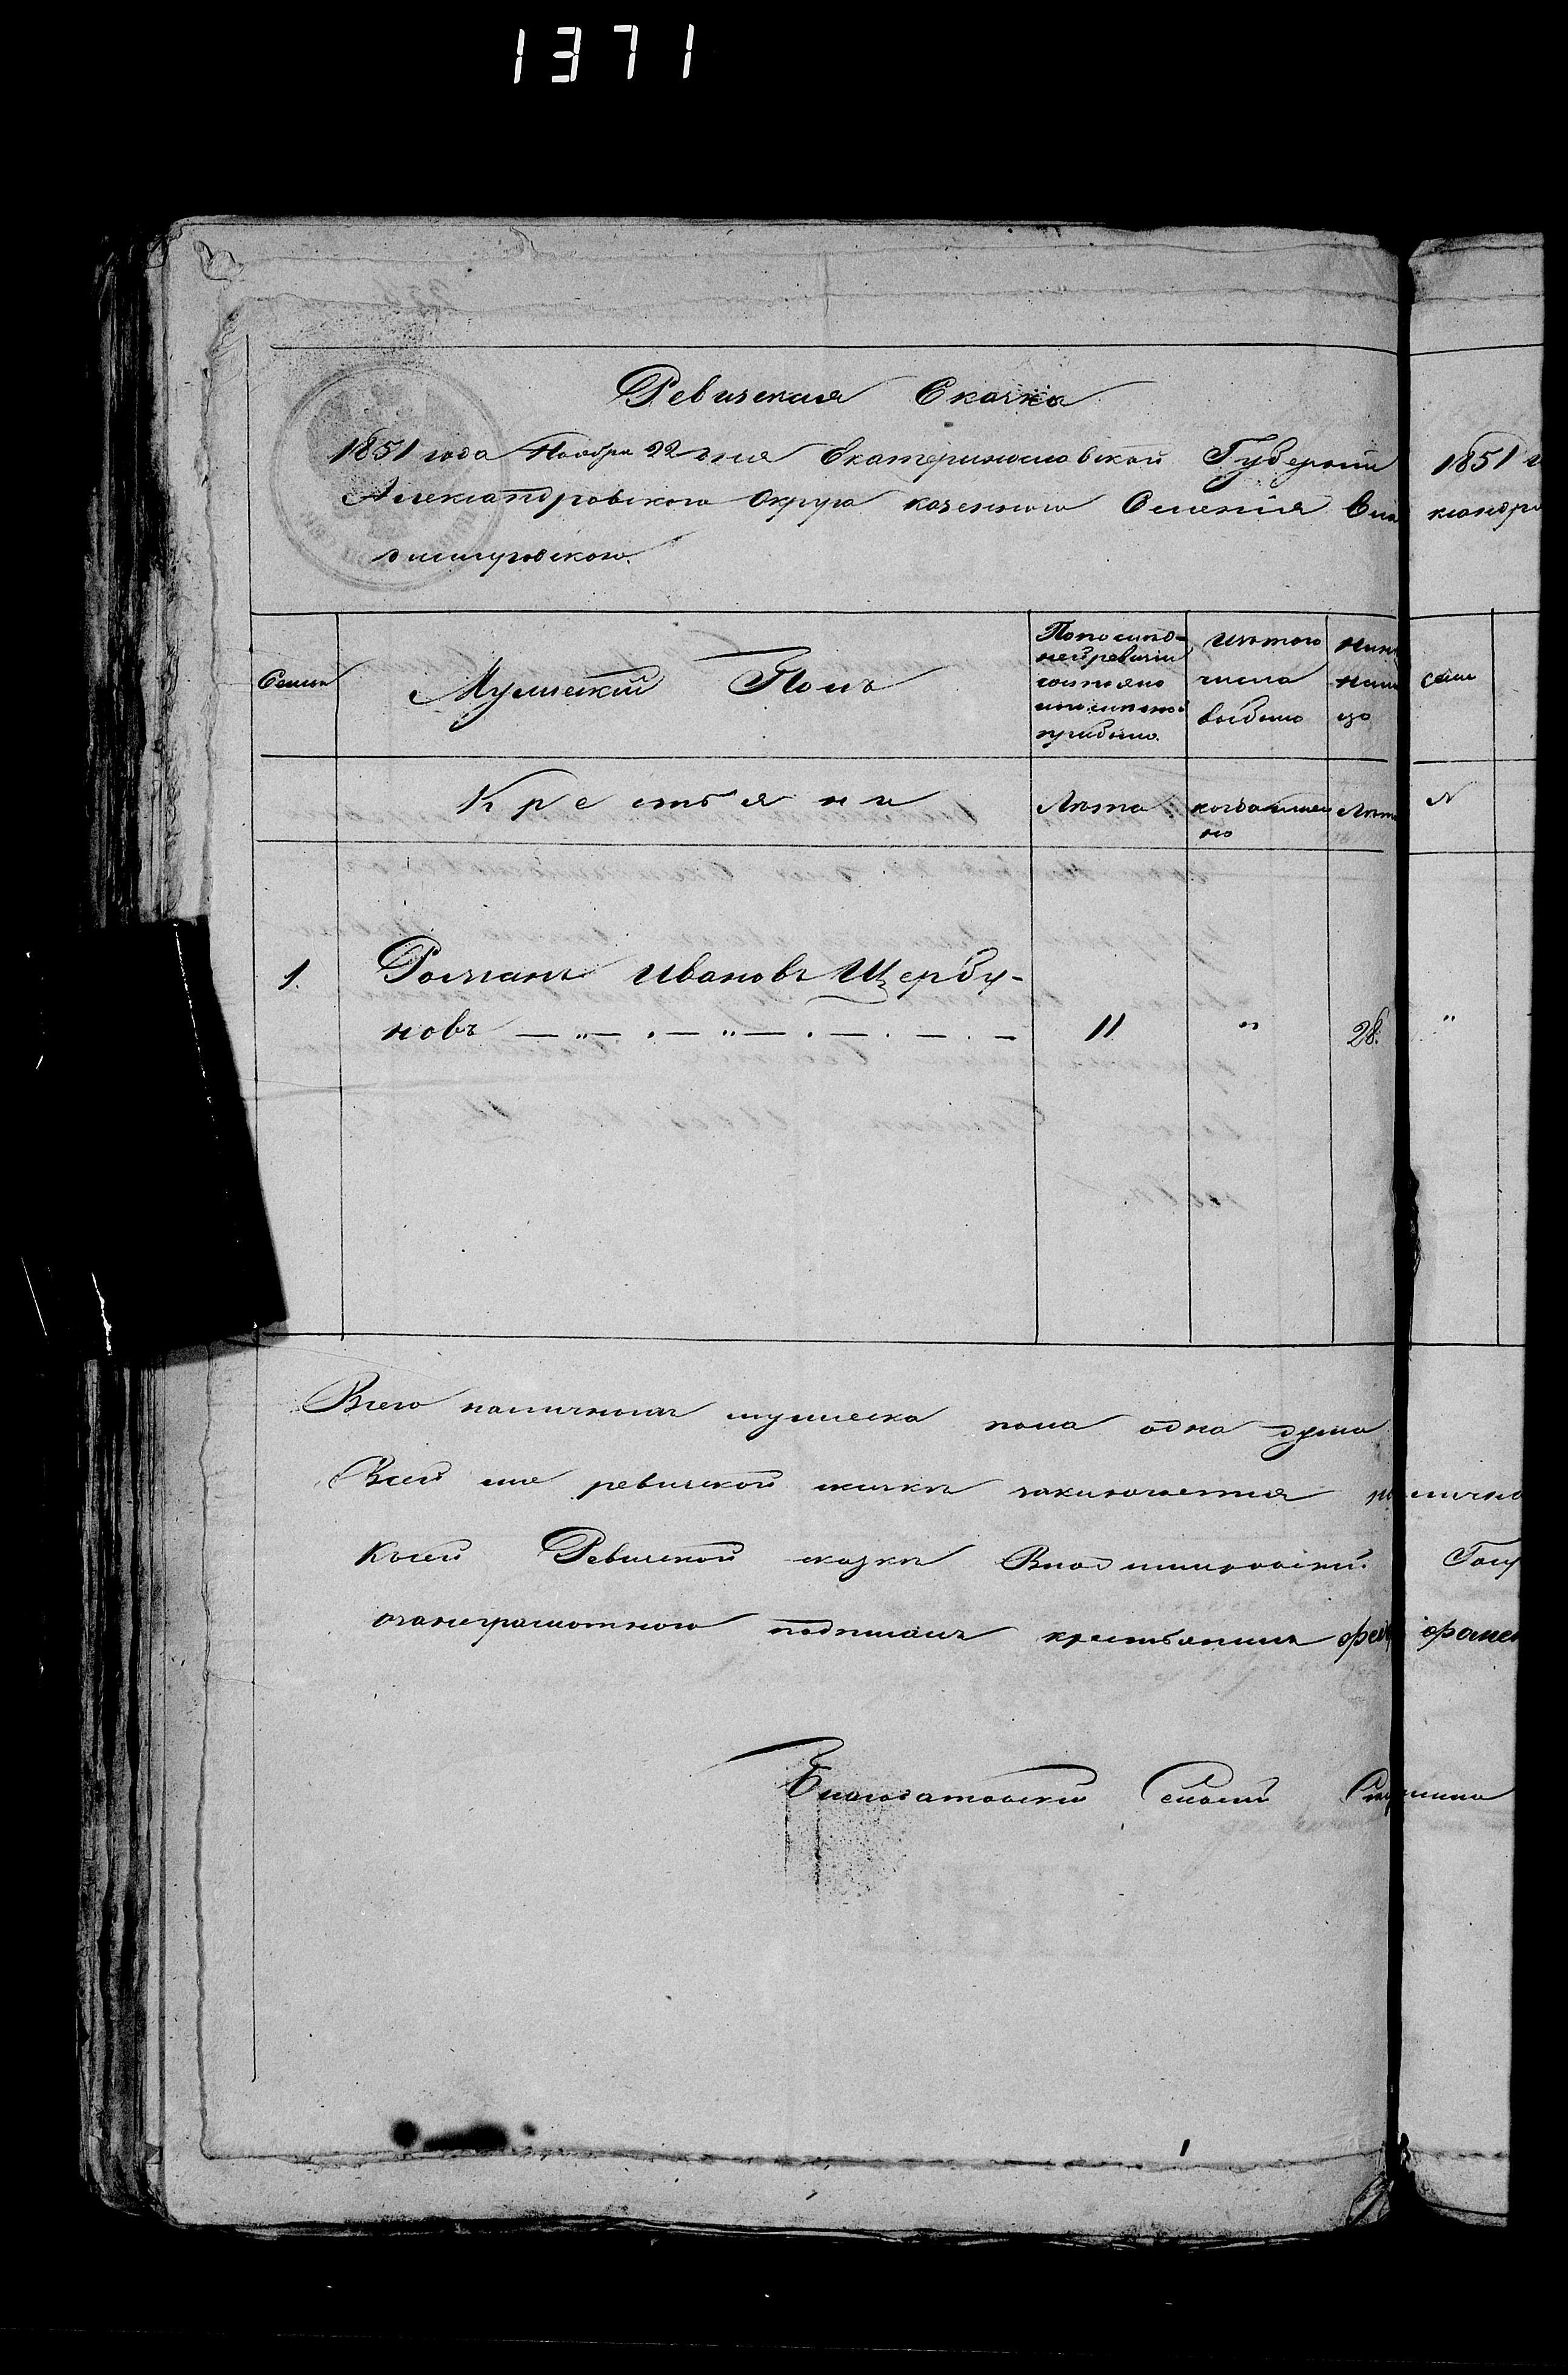 1371
Ревизская Сказка
1851 года Ноября 22 дня Екатеринославской Губерніи
Александровского Округа казенного Селенія Вла
димировского.
Семьи
Мужескій Полъ
По последней ревизіи состояло и после оной прибыло.
Изъ того числа выбыло
Ныне на лицо
Крестьяне
Лѣта
когда именно
Лѣта
1. Романъ Ивановъ Щербу-
новъ 11 " 28.
Всего наличныхъ мужеска пола одна душа
Въ сей же ревизской сказкѣ заключается
К сей Ревизской сказкѣ
подписалъ крестьянинъ
1851 г
ксандро
сем
№
"